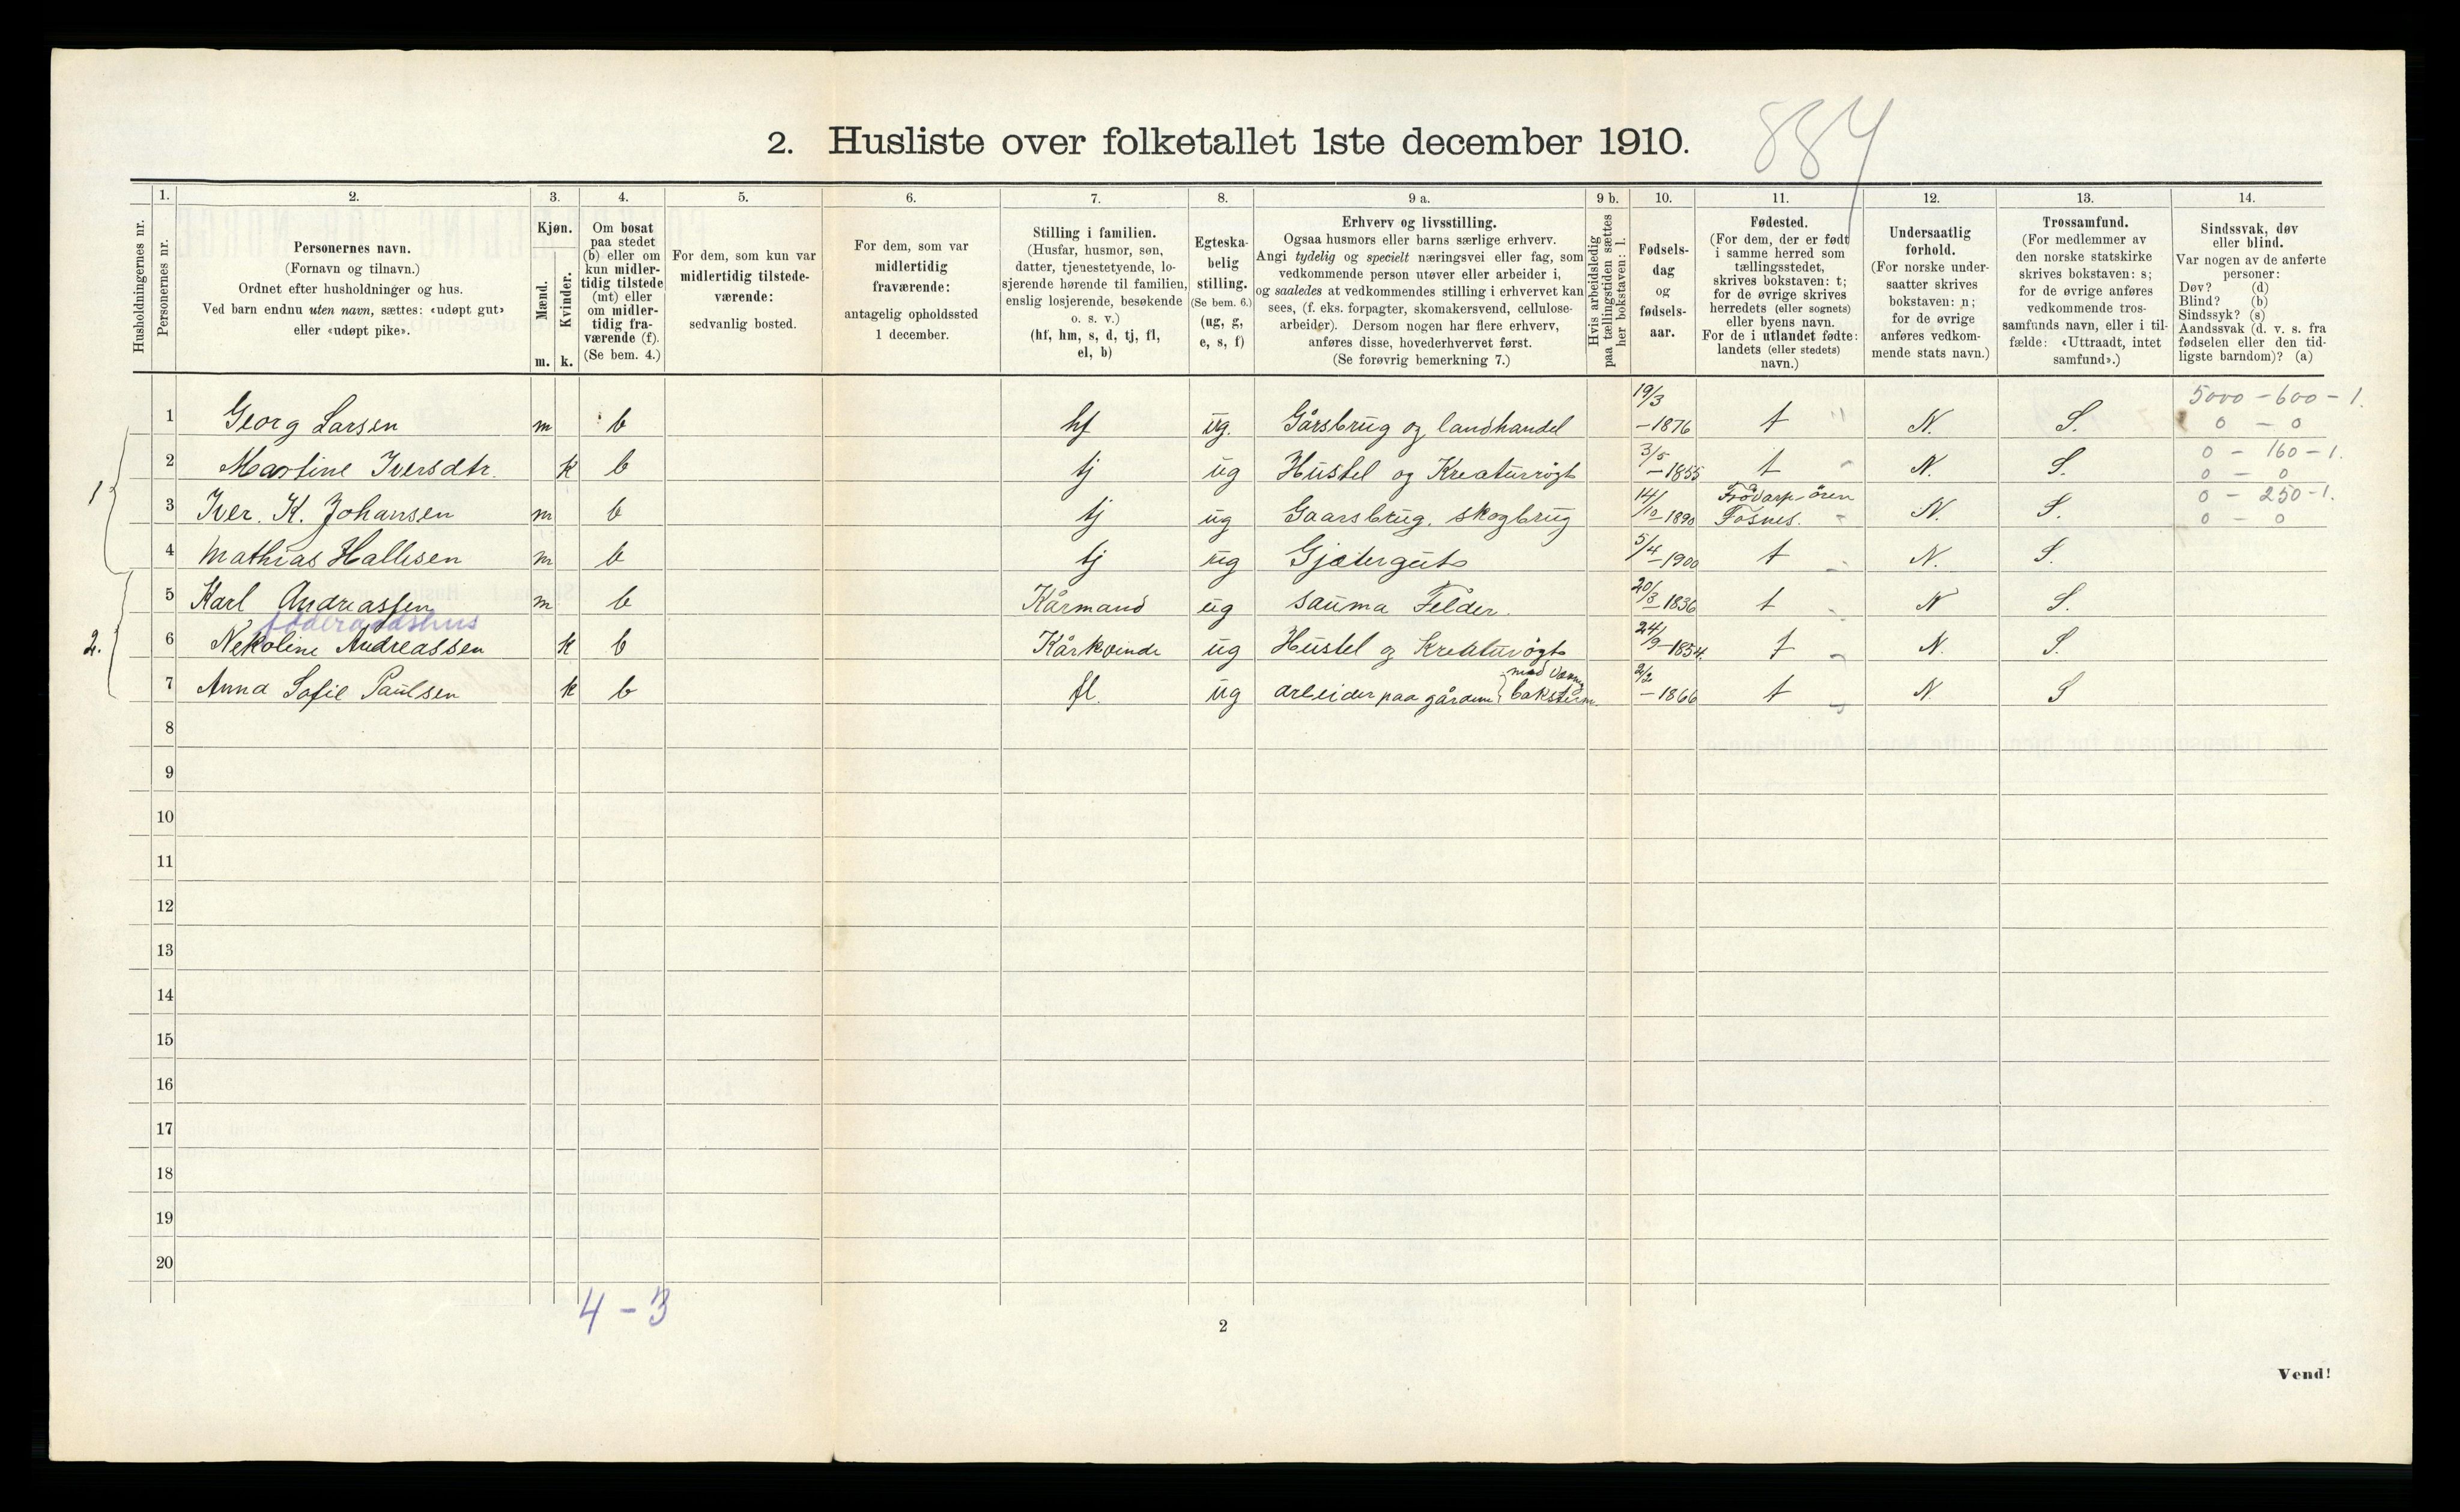 884
2. Husliste over folketallet 1ste december 1910.
Husholdningernes nr.
1.
Personernes nr.
2.
Personernes navn.
(Fornavn og tilnavn.)
Ordnet efter husholdninger og hus.
Ved barn endnu uten navn, sættes: «udøpt gut»
eller «udøpt pike».
3.
Kjøn.
Mænd.
m.
Kvinder.
k.
4.
Om bosat
paa stedet
(b) eller om
kun midler-
tidig tilstede
(mt) eller
om midler-
tidig fra-
værende (f).
(Se bem. 4.)
5.
For dem, som kun var
midlertidig tilstede-
værende:
sedvanlig bosted.
6.
For dem, som var
midlertidig
fraværende:
antagelig opholdssted
1 december.
7.
Stilling i familien.
(Husfar, husmor, søn,
datter, tjenestetyende, lo-
sjerende hørende til familien,
enslig losjerende, besøkende
o. s. v.)
(hf, hm, s, d, tj, fl,
el, b)
8.
Egteska-
belig
stilling.
(Se bem. 6.)
(ug, g,
e, s, f)
9 a.
Erhverv og livsstilling.
Ogsaa husmors eller barns særlige erhverv.
Angi tydelig og specielt næringsvei eller fag, som
vedkommende person utøver eller arbeider i,
og saaledes at vedkommendes stilling i erhvervet kan
sees, (f. eks. forpagter, skomakersvend, cellulose-
arbeider). Dersom nogen har flere erhverv,
anføres disse, hovederhvervet først.
(Se forøvrig bemerkning 7.)
9 b.
Hvis arbeidsledig
paa tællingstiden sættes
her bokstaven: l.
10.
Fødsels-
dag
og
fødsels-
aar.
11.
Fødested.
(For dem, der er født
i samme herred som
tællingsstedet,
skrives bokstaven: t;
for de øvrige skrives
herredets (eller sognets)
eller byens navn.
For de i utlandet fødte:
landets (eller stedets)
navn.)
12.
Undersaatlig
forhold.
(For norske under-
saatter skrives
bokstaven: n;
for de øvrige
anføres vedkom-
mende stats navn.)
13.
Trossamfund.
(For medlemmer av
den norske statskirke
skrives bokstaven: s;
for de øvrige anføres
vedkommende tros-
samfunds navn, eller i til-
fælde: «Uttraadt, intet
samfund».)
14.
Sindssvak, døv
eller blind.
Var nogen av de anførte
personer:
Døv? (d)
Blind? (b)
Sindssyk? (s)
Aandssvak (d. v. s. fra
fødselen eller den tid-
ligste barndom)? (a)
1 Georg Larsen m b hf ug. Gårsbrug og landhandel 19/3 -1876 t N. S. 5000 - 600 - 1. 0 - 0
1 2 Martine Iversdtr. k b tj ug Hustel og Kreaturrögt 3/5 -1855 t N. S. 0 - 160 - 1. 0 - 0
3 Iver. K. Johansen m b tj ug Gaarsbrug. skogbrug 14/10-1890 Fosnes. N. S. 0 - 250 - 1. 0 - 0
4 Mathias Hallesen m b tj ug Gjætergut 5/4-1900 t N. S.
5 Karl Andreassen m b Kårmand ug 20/3 1836 t N S.
föderaadshus
2. 6 Nekoline Andreassen k b Kårkvinde ug Hustel og Kreaturrögt 24/9-1854. t N. S.
7 Anna Sofie Paulsen k b fl. ug arbeider paa gården 2/2 -1866 t N S
8
9
10
11
12
13
14
15
16
17
18
19
20
4 - 3
2
Vend!